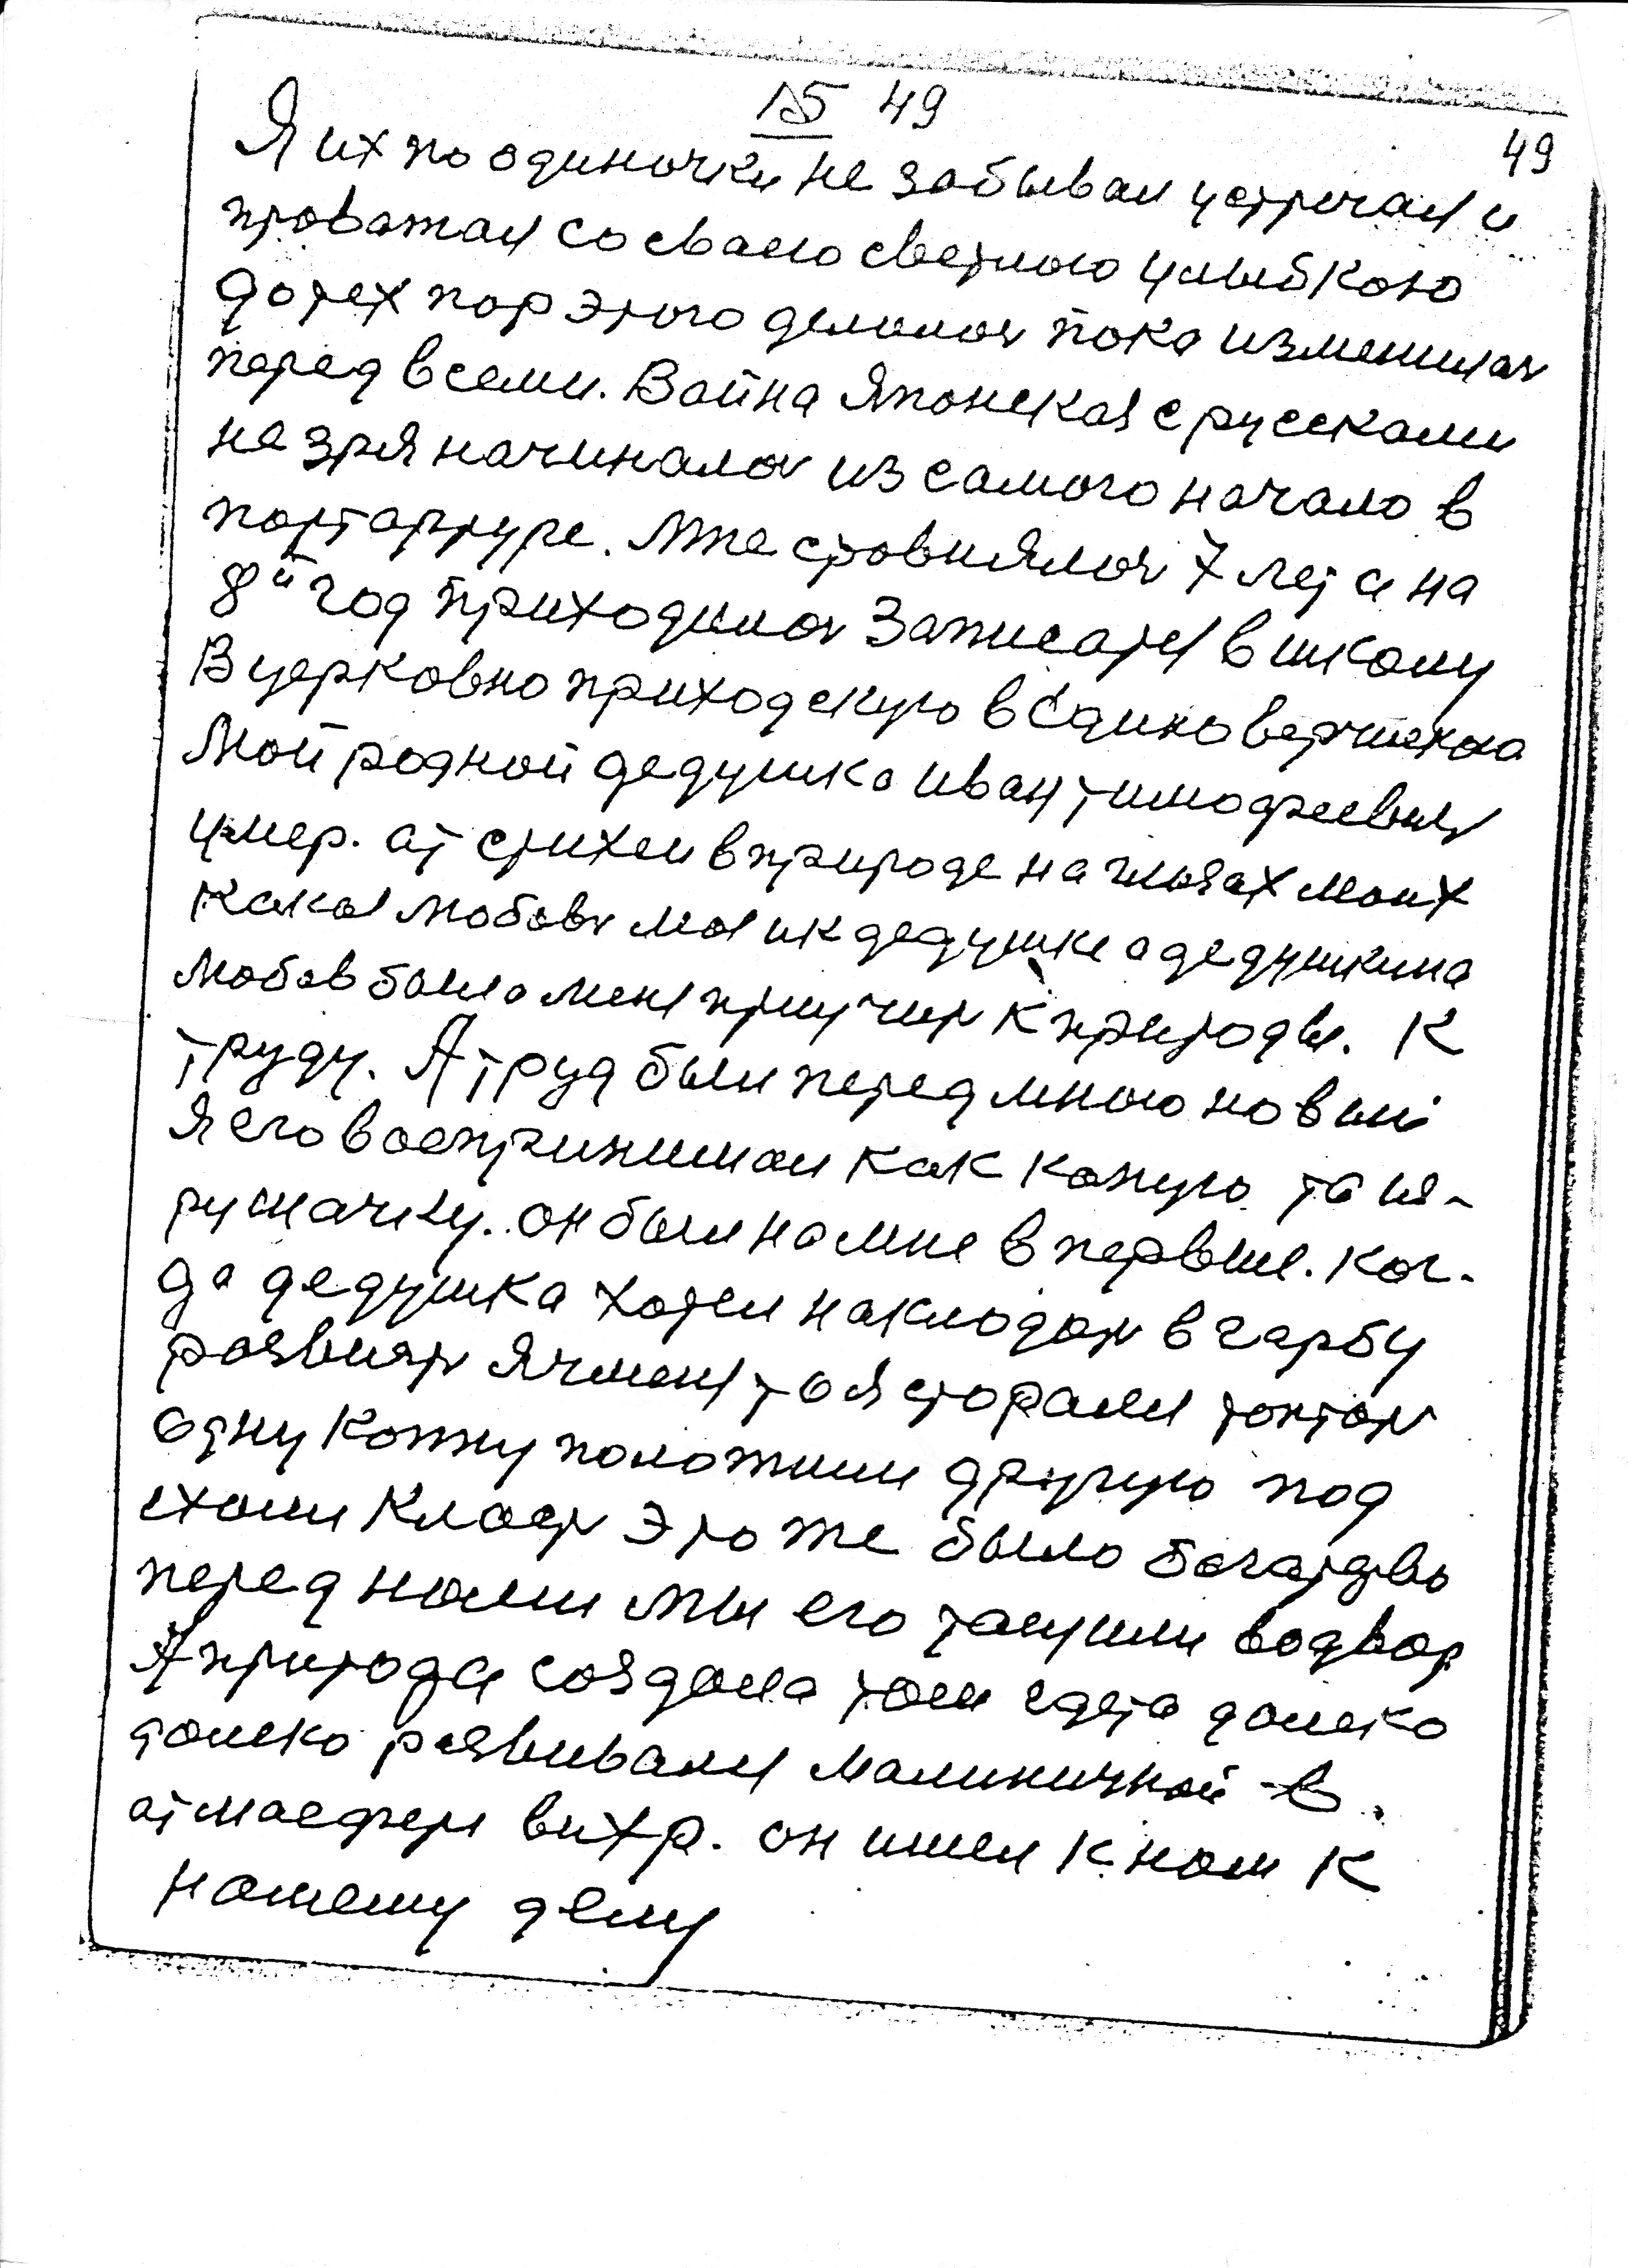 15 49
49
Я их по одиночки не забывал устречал и
проважал со сваею светлою улыбкою
до тех пор этого делалось пока изменилась
перед всеми. Вайна Японская с русскими
не зря начиналась из самого начало в
портартуре. Мне сровнялось 7 лет а на
8й год приходилось Записатся в школу
В церковно приходскую в
Мой родной дедушка иван тимофеевич
умер. ат стихеи в природе на глазах маих
Какая любовь моя и к дедушке а дедушкина
любов была меня приучить к природы. К
труду. А труд был перед мною новый
Я его воспринимал как какую та иг-
рушачку. он был на мне впервые. Ког-
да дедушка хотел накладать в гарбу
развязать Ячменя то я старался топтать
одну копну положили другую под
ехали класть это же было багатство
перед нами мы его тащили водвор
А природа создала там гдета далеко
далеко развивался Малиничкой в
атмасфере вихр. он шел к нам к
нашему делу